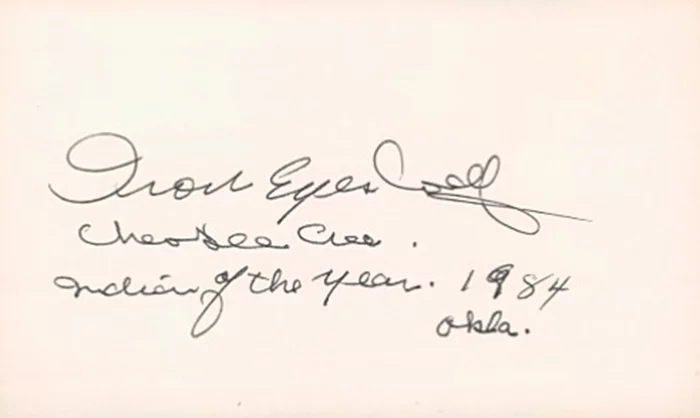 Iron Eyes Cody
Cherokee Cree.
Indian of the Year. 1984
Okla.